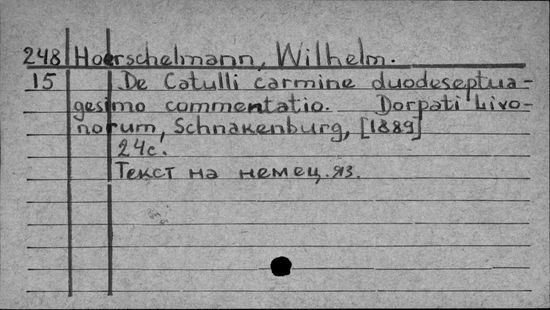 248 Hoerschelmann, Wilhelm.
15 De Catulli carmine duodeseptua-
gesimo commentatio. Dorpati Livo-
norum, Schnakenburg, [1889]
24с.
Текст на немец. яз.